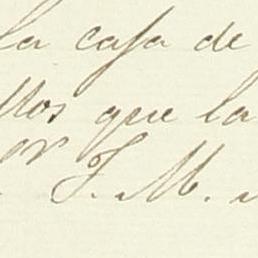 la casa de
llos que la
or J. M.